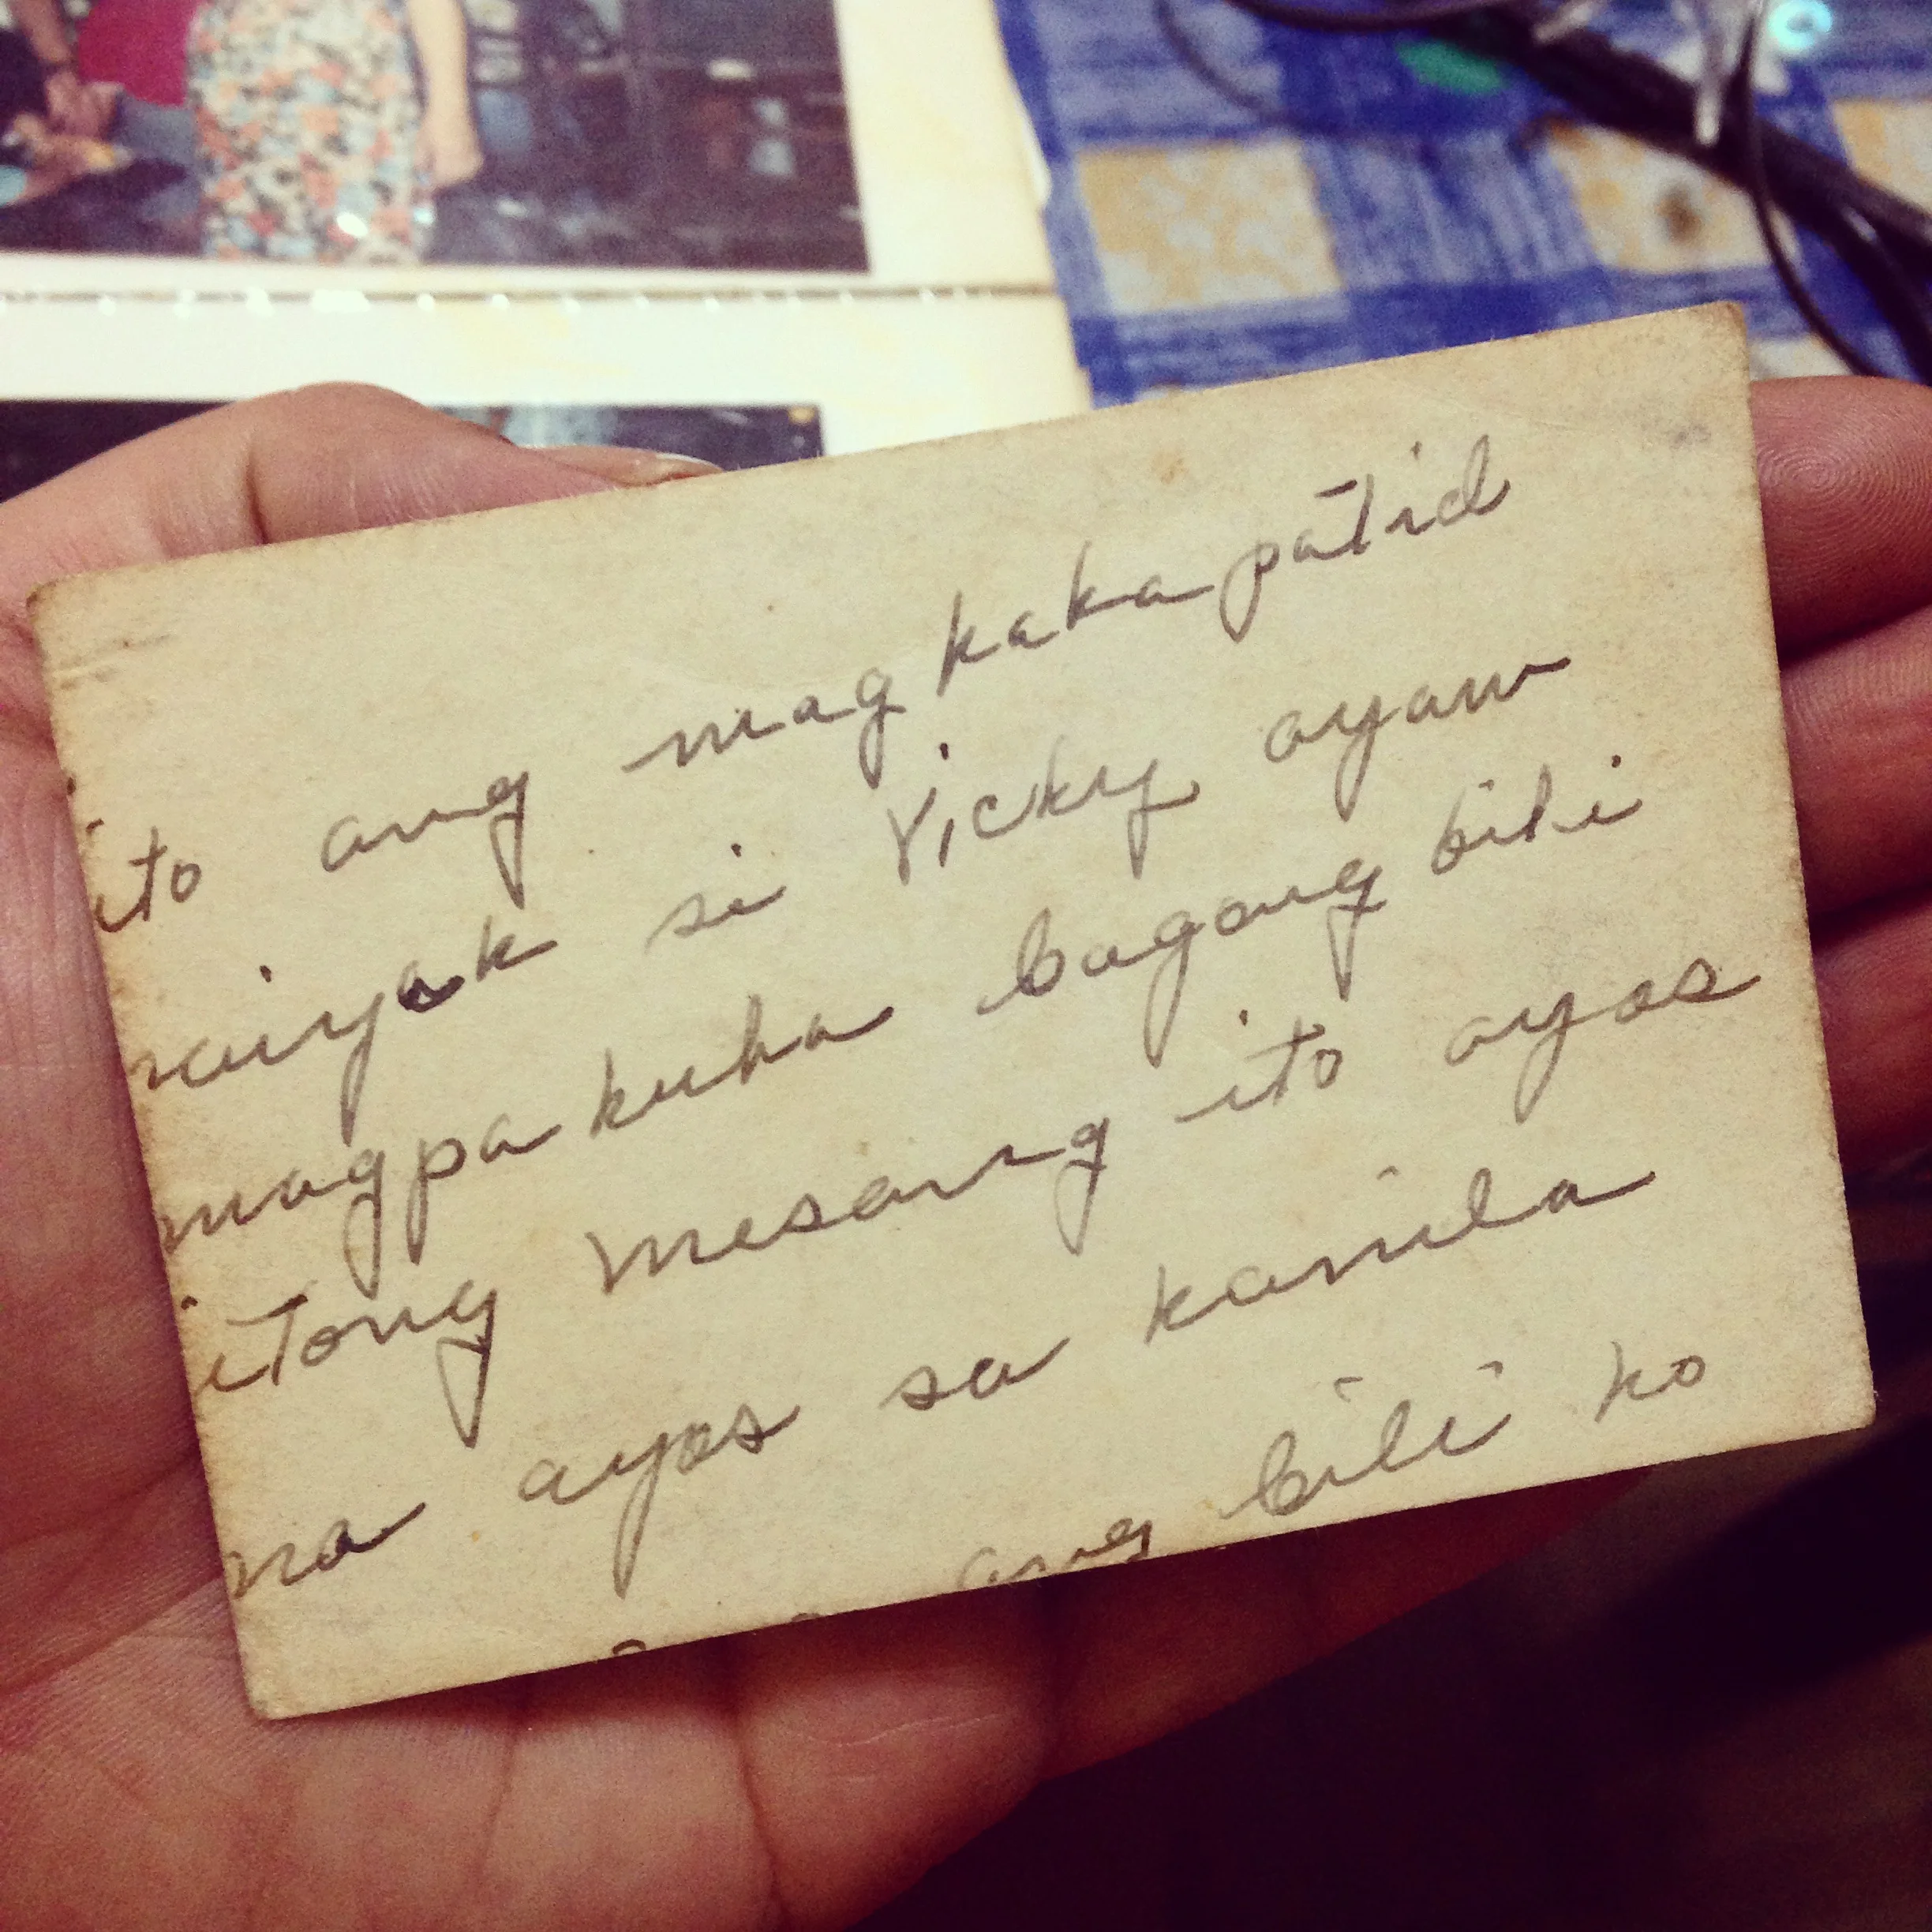 ito ang magkakapatid
naiyak si Vicky ayaw
magpakuha bagong bili
itong mesang ito ayos
na ayos sa kanila
ang bili ko